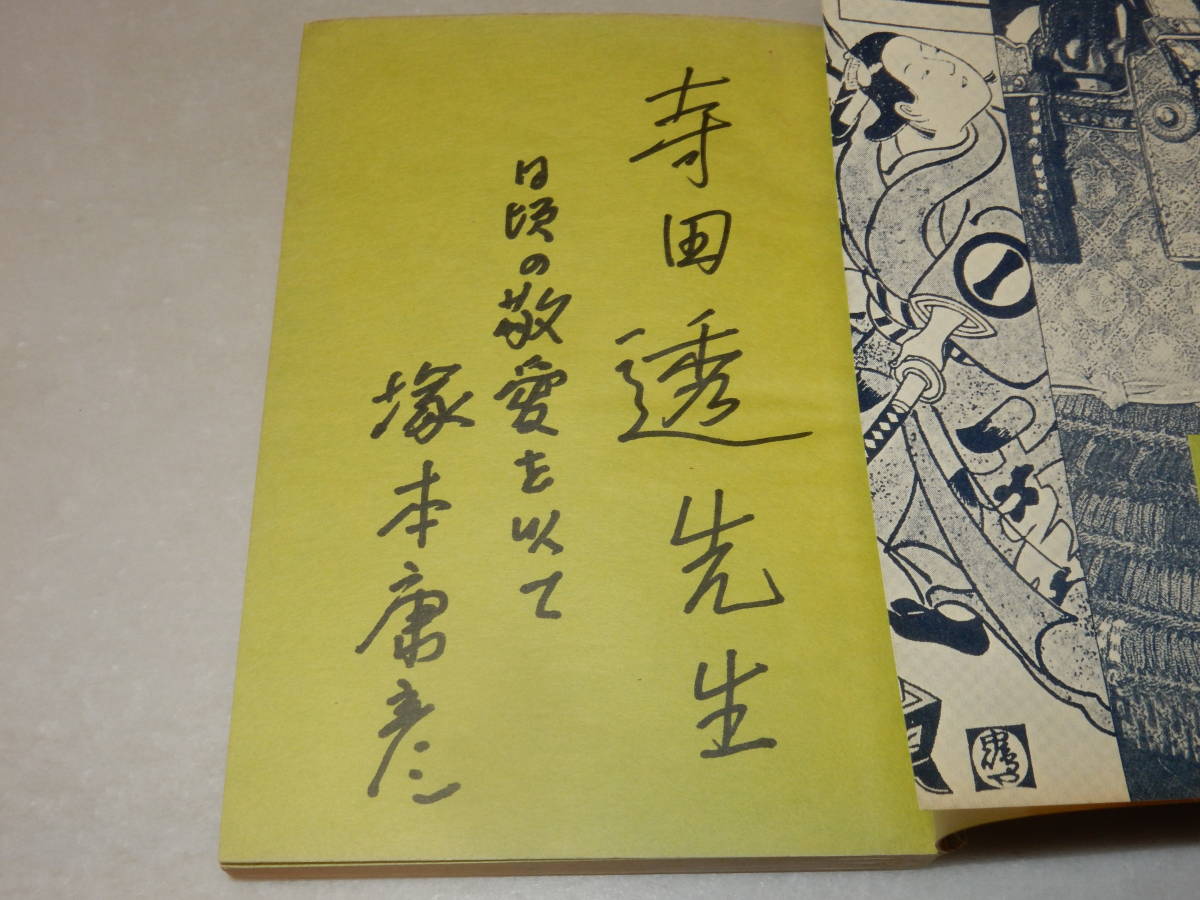 寺田透先生
日頃の敬愛を以て
塚本康彦
一